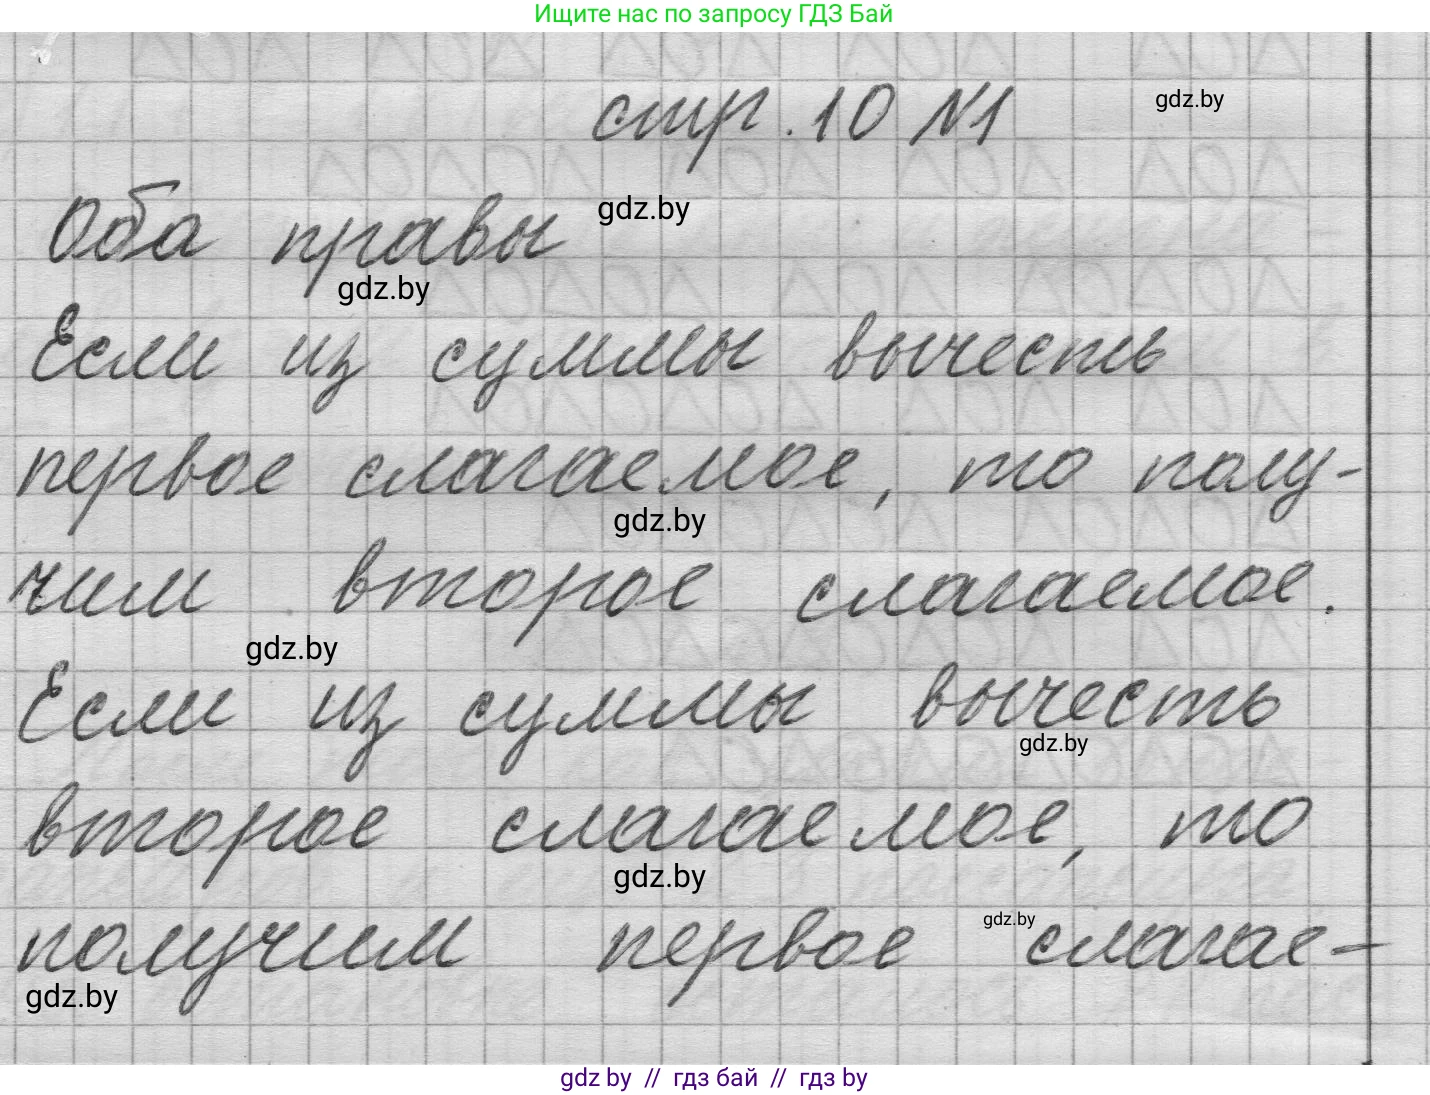 Ищите нас по запросу ГДЗ Бай
стр. 10 №1
gdz.by
Оба правы
gdz.by
gdz.by
Если из суммы вычесть
первое слагаемое, то полу-
gdz.by
чим второе слагаемое.
gdz.by
Если из суммы вычесть
gdz.by
второе слагаемое, то
gdz.by
получим первое слагае-
gdz.by
gdz.by
gdz by // гдз бай // гдз by